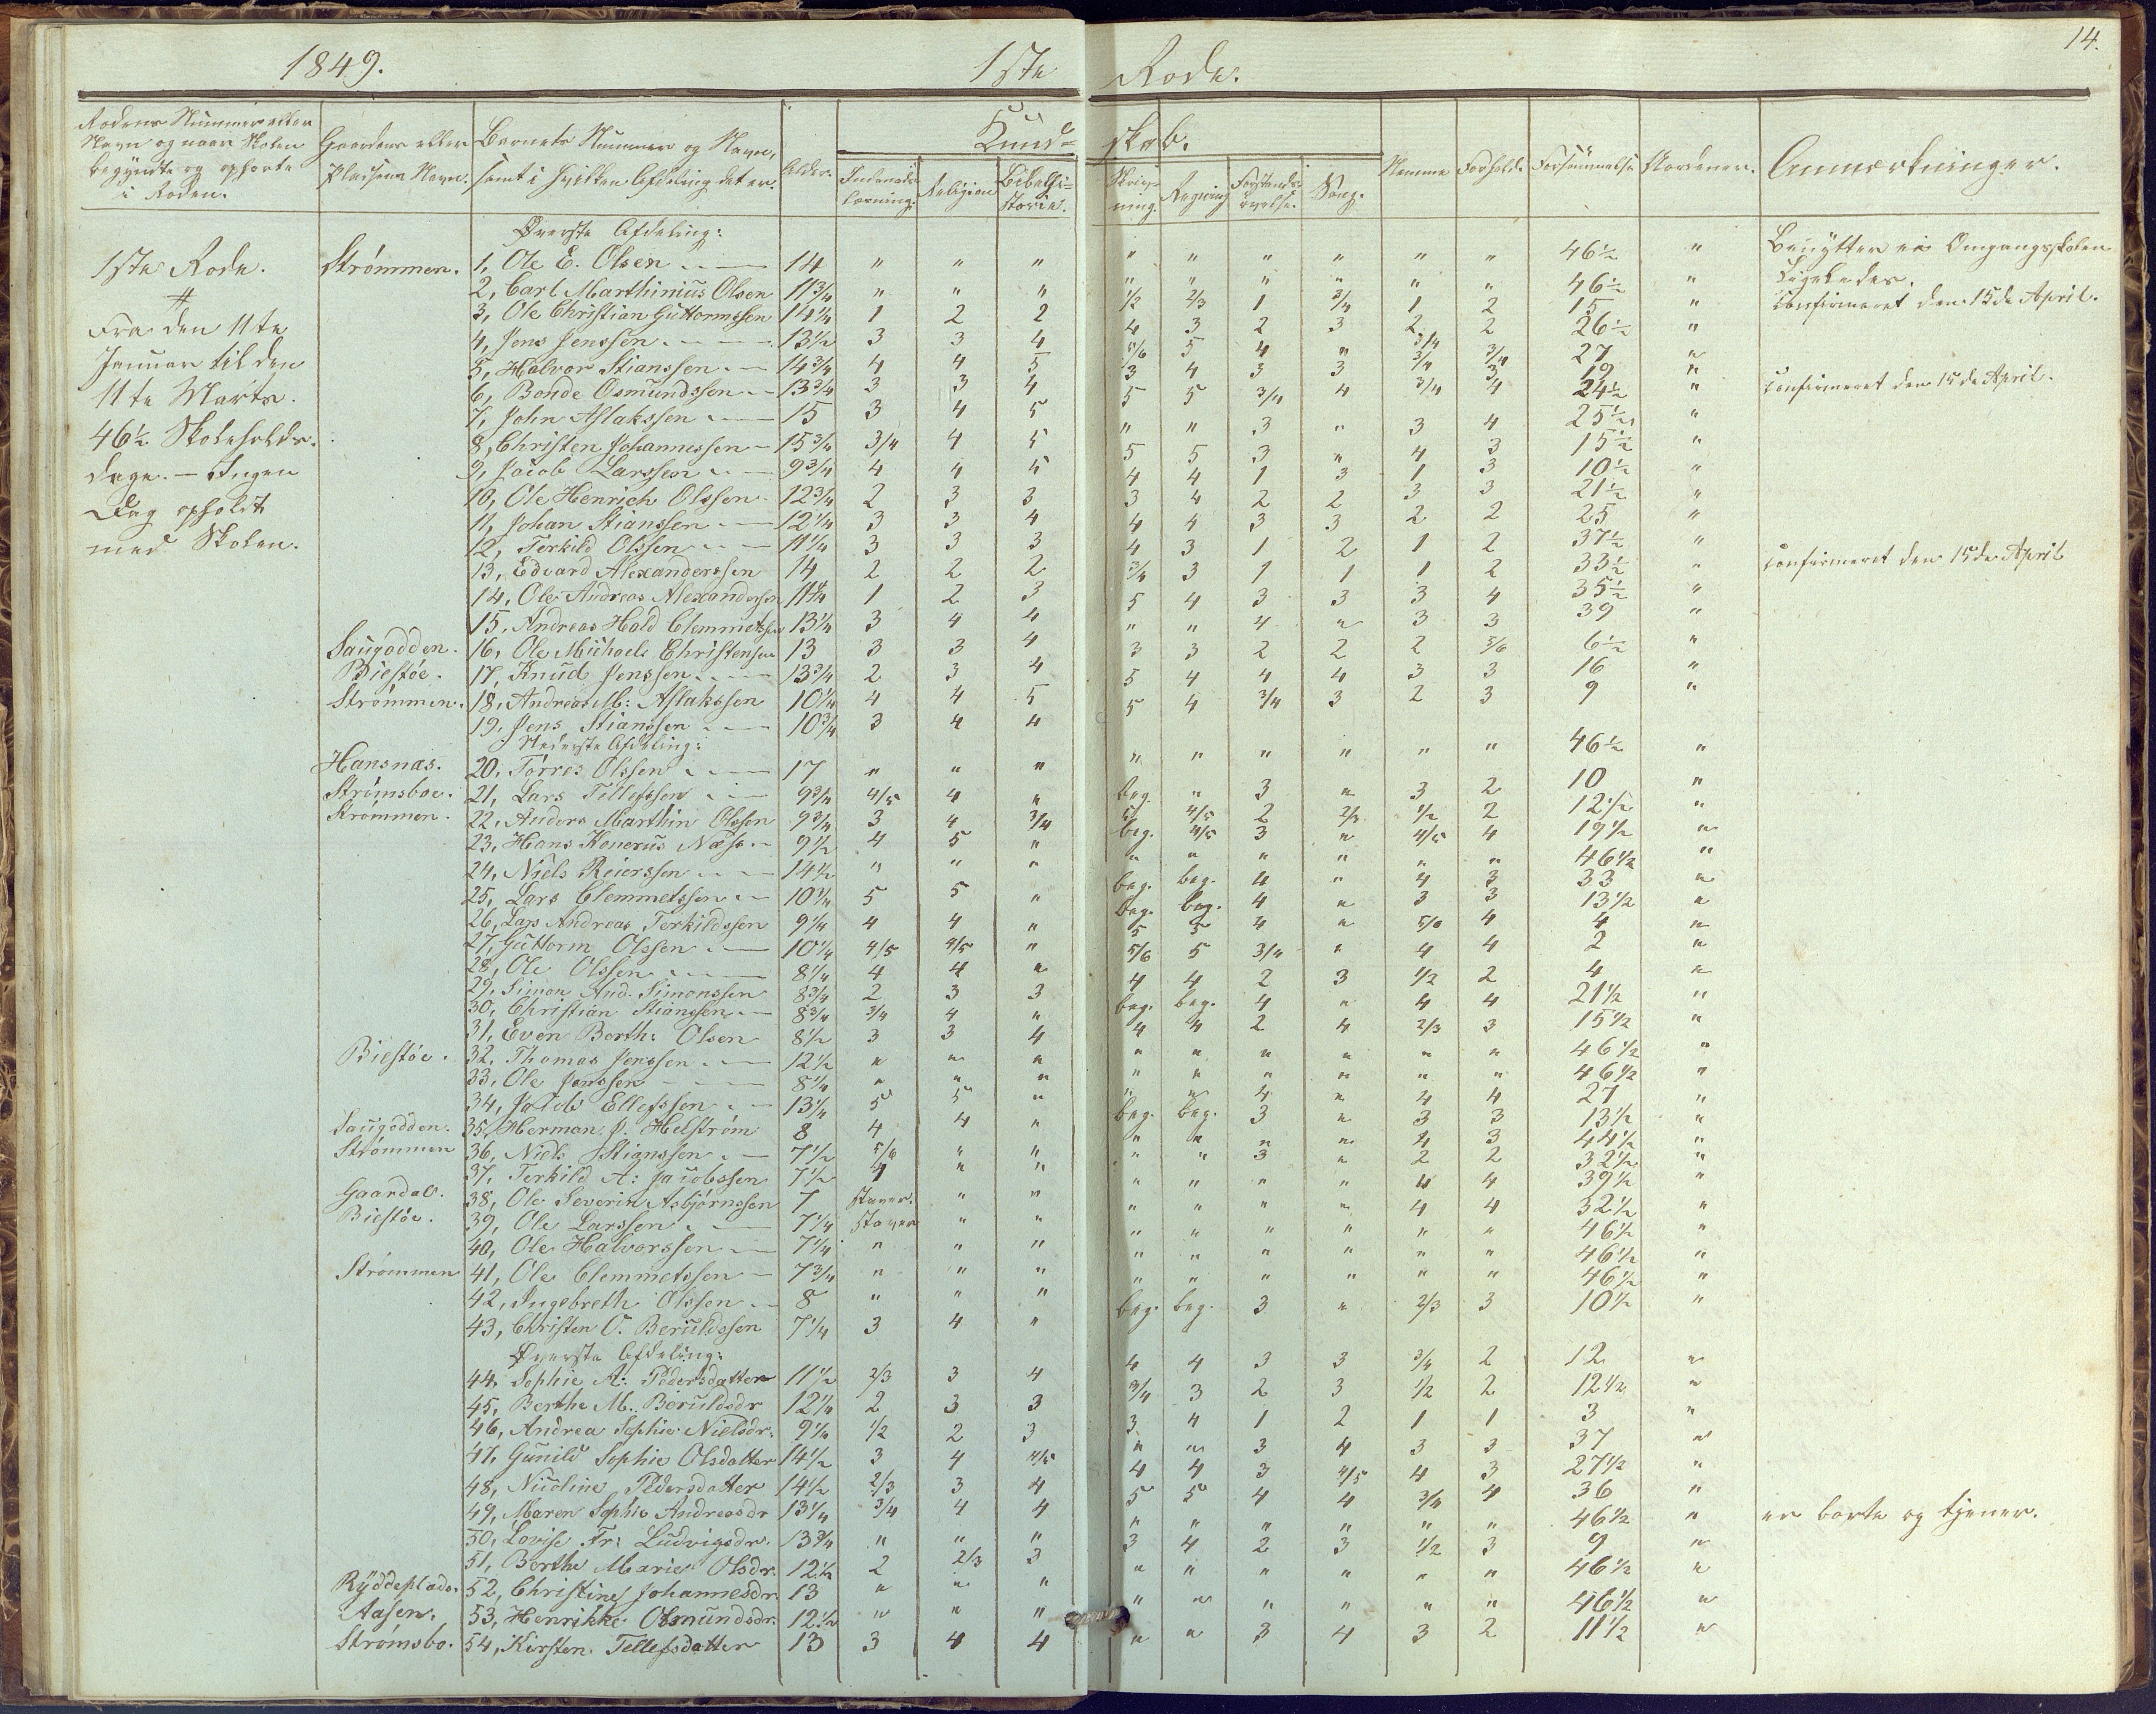 1849. 1ste Rode. 14.
Rodens Nummer eller Navn og naar Skolen begyndte og ophørte i Roden. Gaardens eller Pladsens Navn. Barnets Nummer og Navn, samt i hvilken Afdeling det er. Alder. Kundskab. Indenads-læsning. Religion Bibelhi-storie. Skriv-ning. Regning Forstands-øvelse. Sang. Nemme Forhold. Forsømmelse Skoldenen. Anmærkninger.
Øverste Afdeling:
1ste Rode. Strømmen. 1, Ole E. Olsen 14 " " " " " " " " " 46½ " Benytter ei Omgangsskolen
2, Carl Marthinius Olsen 11¾ " " " " " " " " " 46½ " Ligeledes.
3, Ole Christian Guttormssen 14¼ 1 2 2 ½ 2/3 1 ¾ 1 2 15 " Confirmeret den 15de April.
Fra den 11te 4, Jens Jenssen 13½ 3 3 4 4 3 2 3 2 2 26½ "
Januar til den 5, Halvor Stianssen 14¾ 4 4 5 5/6 5 4 " 3/4 3/4 27 "
11te Marts. 6, Bonde Osmundssen 13¾ 3 3 4 3 4 3 3 3/4 3 19 "
46½ Skoleholds- 7, John Aslakssen 15 3 4 5 5 5 3/4 4 3/4 4 24½ " Confirmeret den 15de April.
8, Christen Johannessen 15¾ 3/4 4 5 " " 3 " 3 4 25½ "
dage. - Ingen 9, Jacob Larssen 9¾ 4 4 5 5 5 3 " 4 3 15½ "
Dag opholdt 10, Ole Henrich Olssen 12¾ 2 3 3 4 4 1 3 1 3 10½ "
med Skolen. 11, Johan Stianssen 12¼ 3 3 4 3 4 2 2 3 3 21½ "
12, Terkild Olssen 11¼ 3 3 3 4 4 3 3 2 2 25 "
13, Edvard Alexanderssen 14 2 2 2 4 3 1 2 1 2 37½ "
14, Ole Andreas Alexandersen 11¼ 1 2 3 3/4 3 1 1 1 2 33½ " Confirmeret den 15de April
15, Andreas Hald Clemmetssen 13¼ 3 4 4 5 4 3 3 3 4 35½ "
Saugodden. 16, Ole Michael Christensen 13 3 3 4 " " 4 " 3 3 39 "
Biestøe. 17, Knud Jenssen 13¾ 2 3 4 3 3 2 2 2 5/6 6½ "
Strømmen. 18, Andreas M: Aslakssen 10¼ 4 4 5 5 4 4 4 3 3 16 "
19, Jens Stianssen 10¾ 3 4 4 5 4 3/4 3 2 3 9 "
Nederste Afdeling:
Hansnæs. 20, Tørres Olssen 17 " " " " " " " " " 46½ "
Strømsboe. 21, Lars Tellefssen 9¾ 4/5 4 " beg. " 3 " 3 2 10 "
Strømmen. 22, Anders Marthin Olssen 9¾ 3 4 3/4 5 4/5 2 2/3 1/2 2 12½ "
23, Hans Konerus Næss 9½ 4 5 " beg. 4/5 3 " 4/5 4 19½ "
24, Niels Reierssen 14½ " " " " " " " " " 46½ "
25, Lars Clemmetssen 10¼ 5 5 " beg. beg. 4 " 4 3 33 "
26, Lars Andreas Terkildssen 9¼ 4 4 " beg. beg. 4 " 3 3 13½ "
27, Guttorm Olssen 10¼ 4/5 4/5 " 5 5 4 " 5/6 4 4 "
28, Ole Olssen 8¼ 4 4 " 5/6 5 3/4 " 4 4 2 "
29, Simon And. Simonssen 8¾ 2 3 3 4 4 2 3 1/2 2 4 "
30, Christian Stianssen 8¾ 3/4 4 " beg. beg. 4 " 4 4 21½ "
31, Even Berth: Olsen 8½ 3 3 4 4 4 2 4 2/3 3 15½ "
Biestøe. 32, Thomas Jenssen 12½ " " " " " " " " " 46½ "
33, Ole Janssen 8¼ " " " " " " " " " 46½ "
34, Jacob Ellefssen 13¼ 5 5 " " " 4 " 4 4 27 "
Saugodden. 35, Herman J. Helstrøm 8 4 4 " beg. beg. 3 " 3 3 13½ "
Strømmen 36, Niels Stianssen 7½ 5/6 " " " " " " 4 3 44½ "
37, Terkild A: Jacobssen 7½ 4 " " " " 3 " 2 2 32½ "
Gaardal. 38, Ole Severin Asbjørnssen 7 staver. " " " " " " 4 4 39½ "
Biestøe. 39, Ole Larssen 7¼ staver " " " " " " 4 4 32½ "
40, Ole Halvorssen 7¼ " " " " " " " " " 46½ "
Strømmen 41, Ole Clemmetssen 7¾ " " " " " " " " " 46½ "
42, Ingebreth Olssen 8 " " " " " " " " " 46½ "
43, Christen O. Beruldssen 7¼ 3 4 " beg. beg. 3 " 2/3 3 10½ "
Øverste Afdeling:
44, Sophie A: Pedersdatter 11½ 2/3 3 4 4 4 3 3 3/4 2 12 "
45, Berthe M. Beruldsdr 12¼ 2 3 3 3/4 3 2 3 1/2 2 12½ "
46, Andrea Sophie Nielsdr. 9¼ 1/2 2 3 3 4 1 2 1 1 3 "
47, Gunild Sophie Olsdatter 14½ 3 4 4/5 " " 3 4 3 3 37 "
48, Nicoline Pedersdatter 14½ 2/3 3 4 4 4 3 4/5 4 3 27½ "
49, Maren Sophie Andreasdr 13¼ 3/4 4 4 5 5 4 4 3/4 4 36 "
50, Lovise Fr: Ludvigsdr. 13¾ " " " " " " " " " 46½ " er borte og tjener.
51, Berthe Marie Olsdr. 12½ 2 2/3 3 3 4 2 3 1/2 3 9 "
Ryddeplads. 52, Christine Johannesdr. 13 " " " " " " " " " 46½ "
Aasen. 53, Henrikke Osmundsdr. 12½ " " " " " " " " " 46½ "
Strømsbo. 54, Kirsten Tellefsdatter 13 3 4 4 " " 3 4 3 2 11½ "